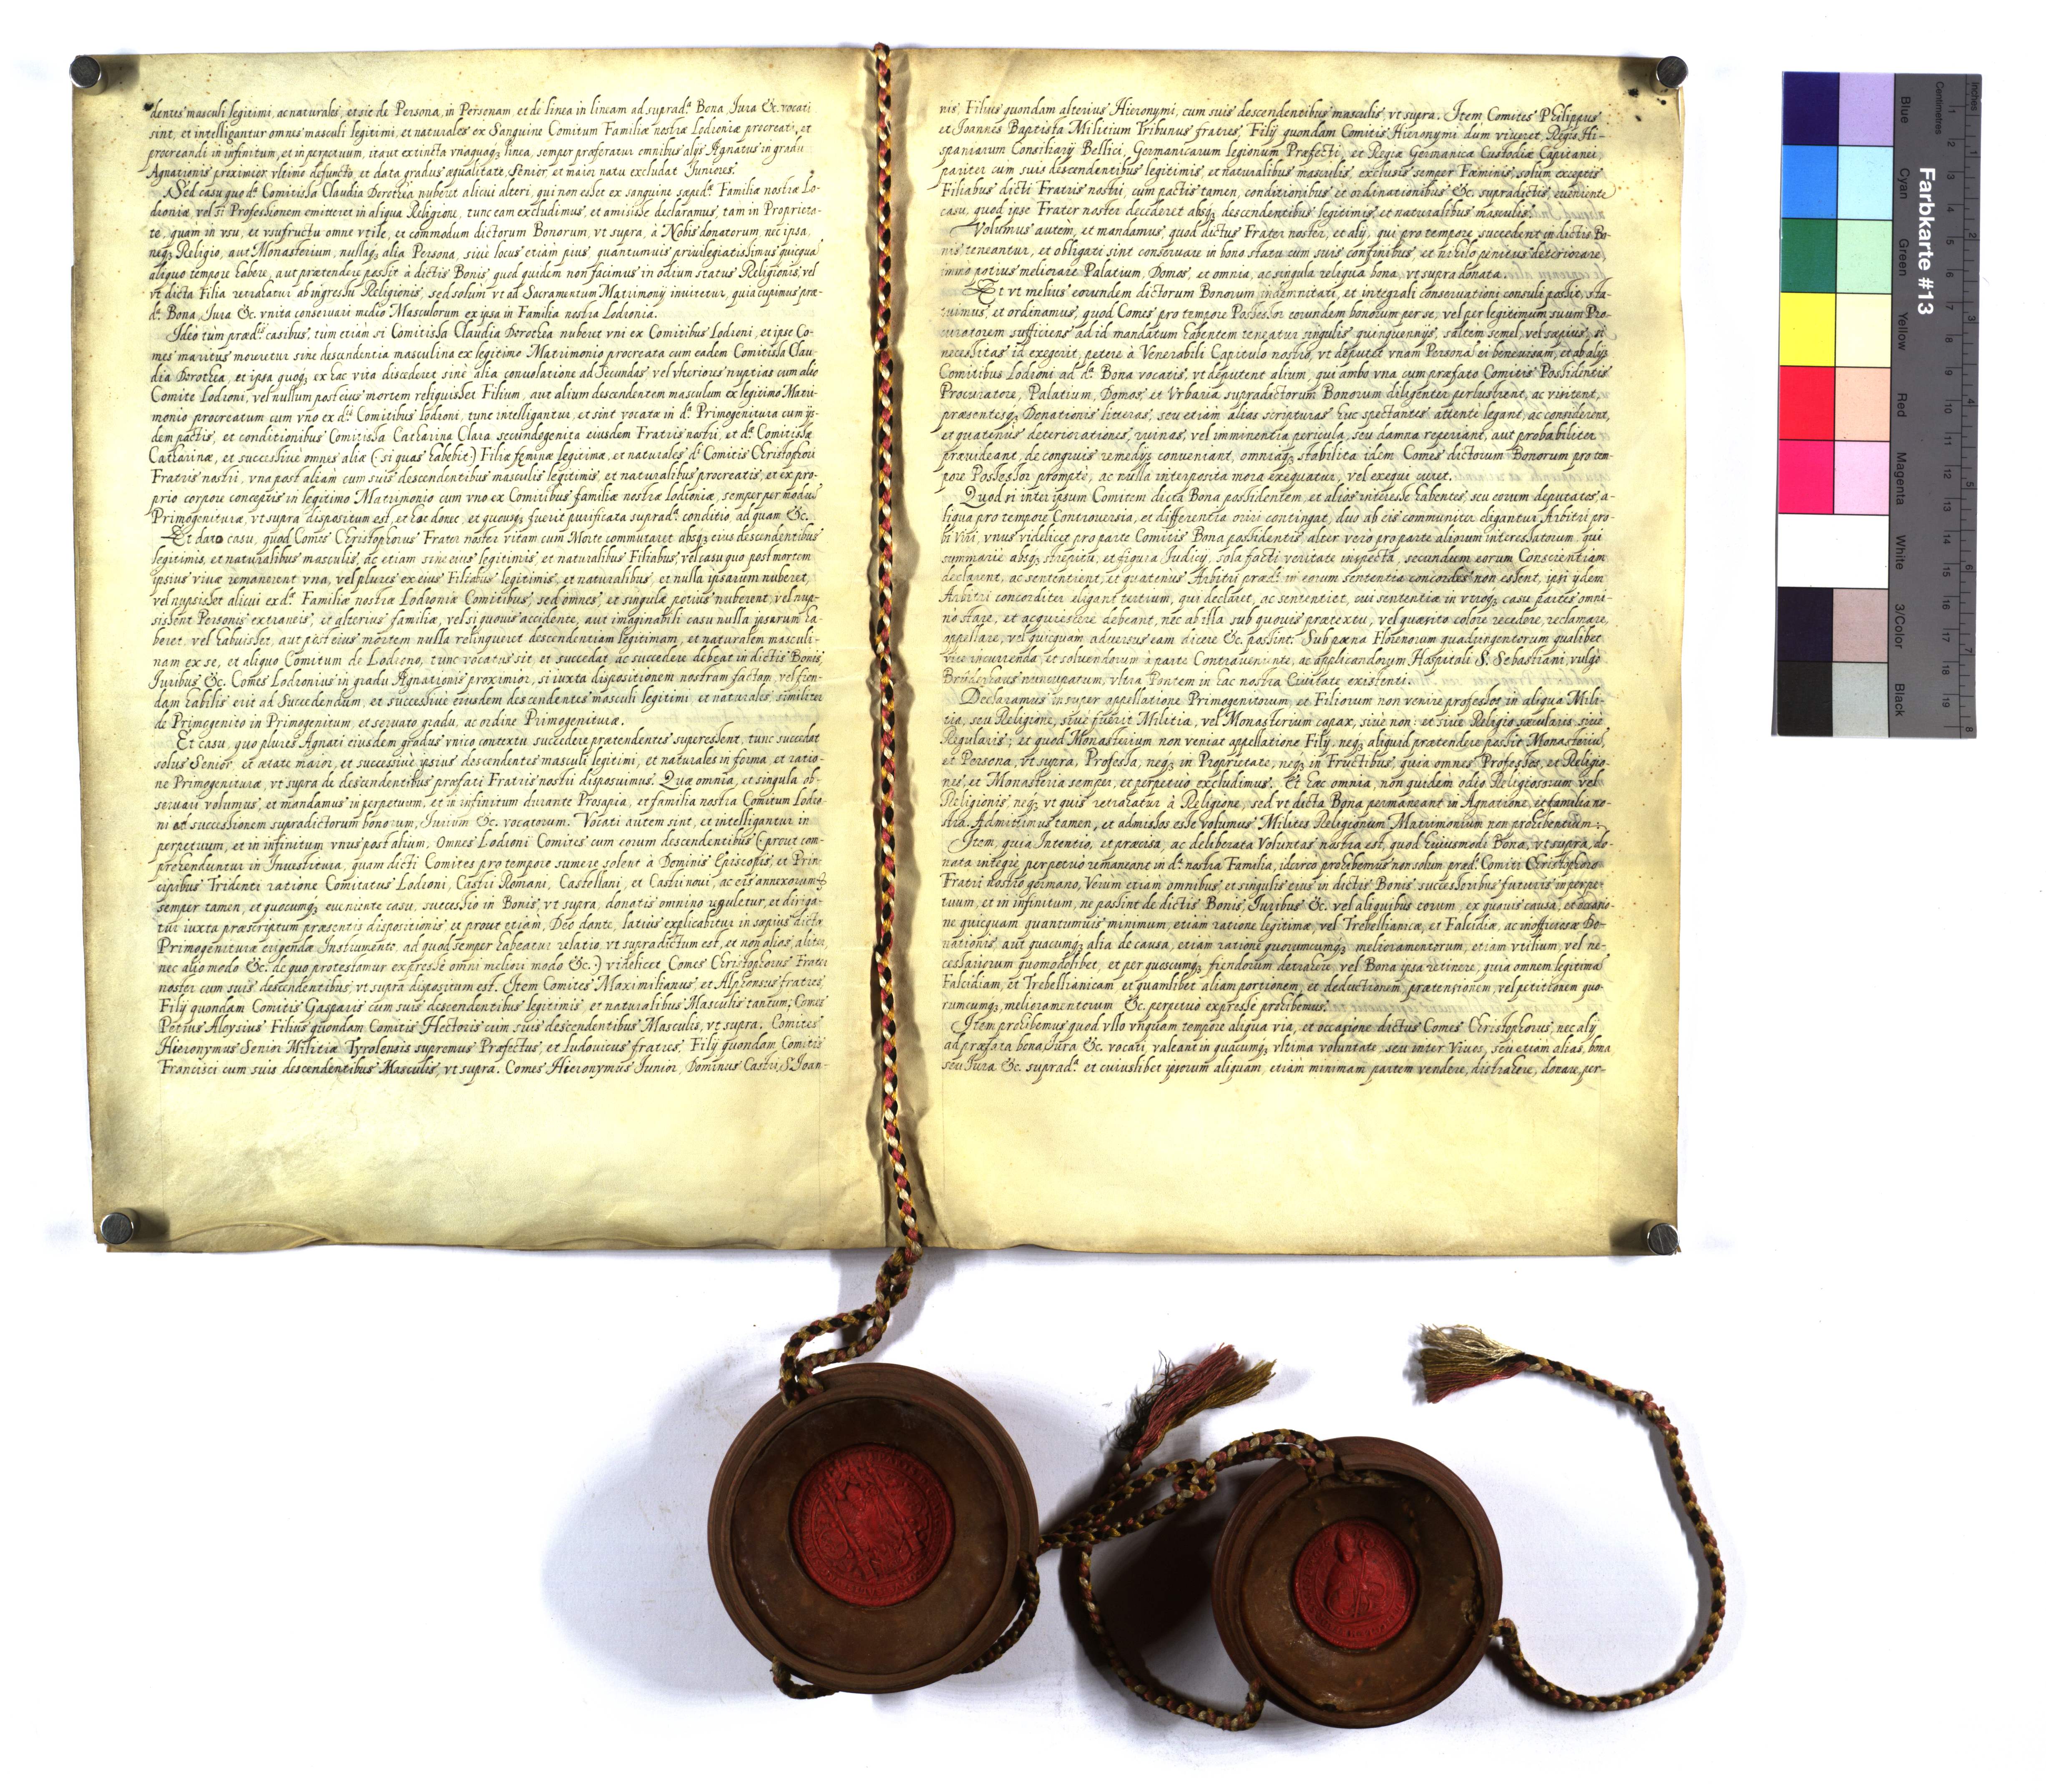 dentes masculi legitimi, ac naturales, et sic de Persona, in Personam, et de linea in lineam ad suprad.ᵃ Bona, Iura &c. vocati
sint, et intelligantur omnes masculi legitimi, et naturales ex Sanguine Comitum Familiæ nostræ Lodroniæ procreati, et
procreandi in infinitum, et in perpetuum, itaut extincta vnaquaq₃ linea, semper præferatur omnibus alys Agnatus in gradu
Agnationis proximior vltimo defuncto, et data gradus æqualitate, Senior, et maior natu excludat Iuniores.
Sed casu quo d.ᵃ Comitissa Claudia Dorothea nuberet alicui alteri, qui non esset ex sanguine sæped.ᵃ Familiæ nostræ Lo-
droniæ, vel si Professionem emitteret in aliqua Religione, tunc eam excludimus, et amisisse declaramus, tam in Proprieta-
te, quam in vsu, et vsufructu omne vtile, et commodum dictorum Bonorum, vt supra, à Nobis donatorum, nec ipsa,
neq₃ Religio, aut Monasterium, nullaq₃ alia Persona, siue locus etiam pius, quantumuis priuilegiatissimus quicquā
aliquo tempore habere, aut prætendere possit à dictis Bonis, quod quidem non facimus in odium status Religionis, vel
vt dicta Filia retrahatur ab ingressu Religionis, sed solum vt ad Sacramentum Matrimonij inuitetur, quia cupimus præ-
d.ᵃ Bona, Iura &c. vnita conseruari medio Masculorum ex ipsa in Familia nostra Lodronia.
Ideo tùm præd.ⁱˢ casibus, tum etiàm si Comitissa Claudia Dorothea nuberet vni ex Comitibus Lodroni, et ipse Co-
mes maritus moreretur sine descendentia masculina ex legitimo Matrimonio procreata cum eadem Comitissa Clau-
dia Dorothea, et ipsa quoq₃ ex hac vita discederet sine alia conuolatione ad Secundas, vel vlteriores nuptias cum alio
Comite Lodroni, vel nullum post eius mortem reliquisset Filium, aut alium descendentem masculum ex legitimo Matri-
monio procreatum cum vno ex d.ⁱˢ Comitibus Lodroni, tunc intelligantur, et sint vocatæ in d.ᵃ Primogenitura cum ijs-
dem pactis, et conditionibus Comitissa Catharina Clara secundogenita eiusdem Fratris nostri, et d.ᵃ Comitissæ
Catharinæ, et successiuè omnes aliæ (si quas habebit) Filiæ fęminæ legitimæ, et naturales d.ⁱ Comitis Christophori
Fratris nostri, vna post aliàm cum suis descendentibus masculis legitimis, et naturalibus procreatis, et ex pro-
prio corpore conceptis in legitimo Matrimonio cum vno ex Comitibus familiæ nostræ Lodroniæ, semper per modū
Primogenituræ, vt supra dispositum est, et hoc donec, et quousq₃ fuerit purificata suprad.ᵃ conditio, ad quam &c.
Et dato casu, quod Comes Christophorus Frater noster vitam cum Morte commutaret absq₃ eius descendentibus
legitimis, et naturalibus masculis, ac etiam sine eius legitimis, et naturalibus Filiabus, vel casu quo post mortem
ipsius viuæ remanerent vna, vel plures ex eius Filiabus legitimis, et naturalibus, et nulla ipsarum nuberet,
vel nupsisset alicui ex d.ᵃ Familiæ nostræ Lodroniæ Comitibus, sed omnes, et singulæ potius nuberent, vel nup-
sissent Personis extraneis, et alterius familiæ, vel si quouis accidente, aut imaginabili casu nulla ipsarum ha-
beret, vel habuisset, aut post eius mortem nulla relinqueret descendentiam legitimam, et naturalem masculi-
nam ex se, et aliquo Comitum de Lodrono, tunc vocatus sit, et succedat, ac succedere debeat in dictis Bonis,
Iuribus &c. Comes Lodronius in gradu Agnationis proximior, si iuxta dispositionem nostram factam, vel fien-
dam habilis erit ad Succedendum, et successiuè eiusdem descendentes masculi legitimi et naturales, similiter
de Primogenito in Primogenitum, et seruato gradu, ac ordine Primogenituræ.
Et casu, quo plures Agnati eiusdem gradus vnico contextu succedere prætendentes superessent, tunc succedat
solus Senior, et ætate maior, et successiuè ipsius descendentes masculi legitimi, et naturales in forma, et ratio-
ne Primogenituræ, vt supra de descendentibus præfati Fratris nostri disposuimus. Quæ omnia, et singula ob-
seruari volumus, et mandamus in perpetuum, et in infinitum durante Prosapia, et familia nostra Comitum Lodro-
ni ad successionem supradictorum bonorum, Iurium &c. vocatorum. Vocati autem sint, et intelligantur in
perpetuum, et in infinitum vnus post alium, Omnes Lodroni Comites cum eorum descendentibus (prout com-
prehenduntur in Inuestitura, quam dicti Comites pro tempore sumere solent à Dominis Episcopis, et Prin-
cipibus Tridenti ratione Comitatus Lodroni, Castri Romani, Castellani, et Castri noui, ac eis annexorum &
semper tamen, et quocumq₃ eueniente casu, successio in Bonis, vt supra, donatis omnino reguletur, et diriga-
tur iuxta præscriptum præsentis dispositionis, et prout etiàm, Deo dante, latiùs explicabitur in sæpius dicto
Primogenituræ erigendæ Instrumento, ad quod semper habeatur relatio, vt supradictum est, et non aliàs, aliter,
nec alio modo &c. de quo protestamur expressè omni meliori modo &c.) videlicet Comes Christophorus Frater
noster cum suis descendentibus, vt supra dispositum est. Item Comites Maximilianus, et Alphonsus fratres,
Filij quondam Comitis Gasparis cum suis descendentibus legitimis et naturalibus Masculis tantum; Comes
Petrus Aloysius Filius quondam Comitis Hectoris cum suis descendentibus Masculis, vt supra. Comites
Hieronymus Senior Militiæ Tyrolensis supremus Præfectus, et Ludouicus fratres, Filij quondam Comitis
Francisci cum suis descendentibus Masculis, vt supra. Comes Hieronymus Iunior, Dominus Castri S. Ioan-
nis, Filius quondam alterius Hieronymi, cum suis descendentibus masculis, vt supra. Item Comites Philippus
et Ioannes Baptista Militium Tribunus fratres, Filij quondam Comitis Hieronymi dum viueret, Regis Hi-
spaniarum Consiliarij Bellici, Germanicarum legionum Præfecti, et Regiæ Germanicæ Custodiæ Capitanei,
pariter cum suis descendentibus legitimis, et naturalibus masculis, exclusis semper Fæminis, solum exceptis
Filiabus dicti Fratris nostri, cum pactis tamen, conditionibus, et ordinationibus &c. supradictis, eueniente
casu, quod ipse Frater noster decederet absq₃ descendentibus legitimis, et naturalibus masculis.
Volumus autèm, et mandamus, quod dictus Frater noster, et alij, qui pro tempore succedent in dictis Bo-
nis teneantur, et obligati sint conseruare in bono statu cum suis confinibus, et nihilo penitus deteriorare,
immo potius meliorare Palatium, Domos, et omnia, ac singula reliqua bona, vt supra donata.
Et vt melius eorundem dictorum Bonorum indemnitati, et integrali conseruationi consuli possit, sta-
tuimus, et ordinamus, quod Comes pro tempore Possessor eorundem bonorum per se, vel per legitimum suum Pro-
curatorem sufficiens ad id mandatum habentem teneatur singulis quinquenniis, saltem semel, vel sæpius, si
necessitas id exegerit, petere à Venerabili Capitulo nostro, vt deputet vnam Personam ei beneuisam, et ab alijs
Comitibus Lodroni ad d.ᵃ Bona vocatis, vt deputent alium, qui ambo vna cum præfato Comitis Possidentis
Procuratore, Palatium, Domos, et Vrbaria supradictorum Bonorum diligenter perlustrent, ac visitent,
præsentesq₃ Donationis litteras, seu etiàm alias scripturas huc spectantes attente legant, ac considerent,
et quatenus deteriorationes, ruinas, vel imminentia pericula, seu damna reperiant, aut probabiliter
præuideant, de congruis remedijs conueniant, omniaq₃ stabilita idem Comes dictorum Bonorum pro tem-
pore Possessor promptè, ac nulla interposita mora exequatur, vel exequi curet.
Quod si inter ipsum Comitem dicta Bona possidentem, et alios interesse habentes, seu eorum deputatos a-
liqua pro tempore Controuersia, et differentia oriri contingat, duo ab eis communiter eligantur Arbitri pro-
bi viri, vnus videlicet pro parte Comitis Bona possidentis, alter verò pro parte aliorum interessatorum, qui
summariè absq₃ strepitu, et figura Iudicij, sola facti veritate inspecta, secundum eorum Conscientiam
declarent, ac sententient, et quatenus Arbitri præd.ⁱ in eorum sententia concordes non essent, ipsi ijdem
Arbitri concorditer eligant tertium, qui declaret, ac sententiet, cui sententiæ in vtroq₃ casu partes omni-
nò stare, et acquiescere debeant, nec ab illa sub quouis prætextu, vel quæsito colore recedere, reclamare,
appellare, vel quicquam aduersus eam dicere &c. possint. Sub pæna Florenorum quadringentorum qualibet
vice incurrenda, et soluendorum à parte Contraueniente, ac applicandorum Hospitali S. Sebastiani, vulgò
Brüderhaus nuncupatum, vltra Pontem in hac nostra Ciuitate existenti.
Declaramus insuper appellatione Primogenitorum, et Filiorum non venire professos in aliqua Mili-
tia, seu Religione, siue fuerit Militia, vel Monasterium capax, siue non: et siue Religio sæcularis, siue
Regularis; et quod Monasterium non veniat appellatione Filij, neq₃ aliquid prætendere possit Monasteriū,
et Persona, vt supra, Professa, neq₃ in Proprietate, neq₃ in Fructibus, quia omnes Professos, et Religio-
nes, et Monasteria semper, et perpetuo excludimus. Et hæc omnia, non quidem odio Religiosorum vel
Religionis, neq₃ vt quis retrahatur à Religione, sed vt dicta Bona permaneant in Agnatione, et familia no-
stra. Admittimus tamen, et admissos esse volumus Milites Religionum Matrimonium non prohibentium.
Item, quia Intentio, et præcisa, ac deliberata Voluntas nostra est, quod huiusmodi Bona, vt supra, do-
nata integrè perpetuo remaneant in d.ᵃ nostra Familia, idcirco prohibemus non solum præd.ᵒ Comiti Christophoro
Fratri nostro germano, Verum etiam omnibus, et singulis eius in dictis Bonis successoribus futuris in perpe-
tuum, et in infinitum, ne possint de dictis Bonis, Iuribus &c. vel aliquibus eorum, ex quauis causa, et occasio-
ne quicquam quantumuis minimum, etiam ratione legitimæ, vel Trebellianicæ, et Falcidiæ, ac inofficiosæ Do-
nationis aut quacumq₃ alia de causa, etiam ratione quorumcumq₃ melioramentorum, etiam vtilium, vel ne-
cessariorum quomodolibet, et per quoscumq₃ fiendorum detrahere, vel Bona ipsa retinere, quia omnem legitimā
Falcidiam, et Trebellianicam et quamlibet aliam portionem, et deductionem, prætensionem, vel petitionem quo-
rumcumq₃ melioramentorum &c. perpetuò expressè prohibemus.
Item prohibemus quod vllo vnquam tempore aliqua via, et occasione dictus Comes Christophorus, nec alij
ad præfata bona, Iura &c. vocati, valeant in quacumq₃ vltima voluntate, seu inter Viuos, seu etiam alias, bona
seu Iura &c. suprad.ᵃ et cuiuslibet ipsorum aliquam, etiam minimam partem vendere, distrahere, donare, per-
Farbkarte #13
Blue
Cyan
Green
Yellow
Red
Magenta
White
3/Color
Black
Centimetres
Inches
1
2
3
4
5
6
7
8
9
10
11
12
13
14
15
16
17
18
19
1
2
3
4
5
6
7
8